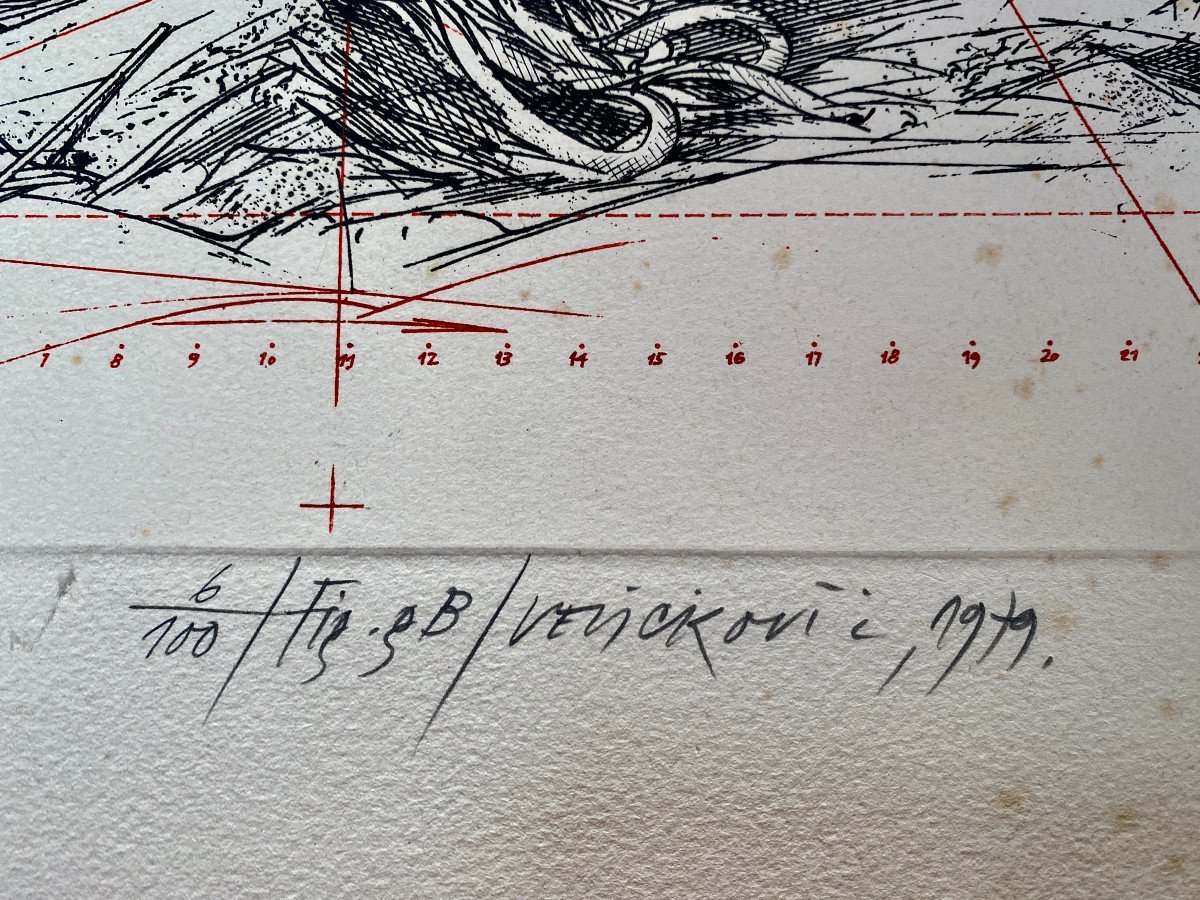 7 8 9 10 11 12 13 14 15 16 17 18 19 20 21
6/100 / Fig. gB / Veličković, 1979.